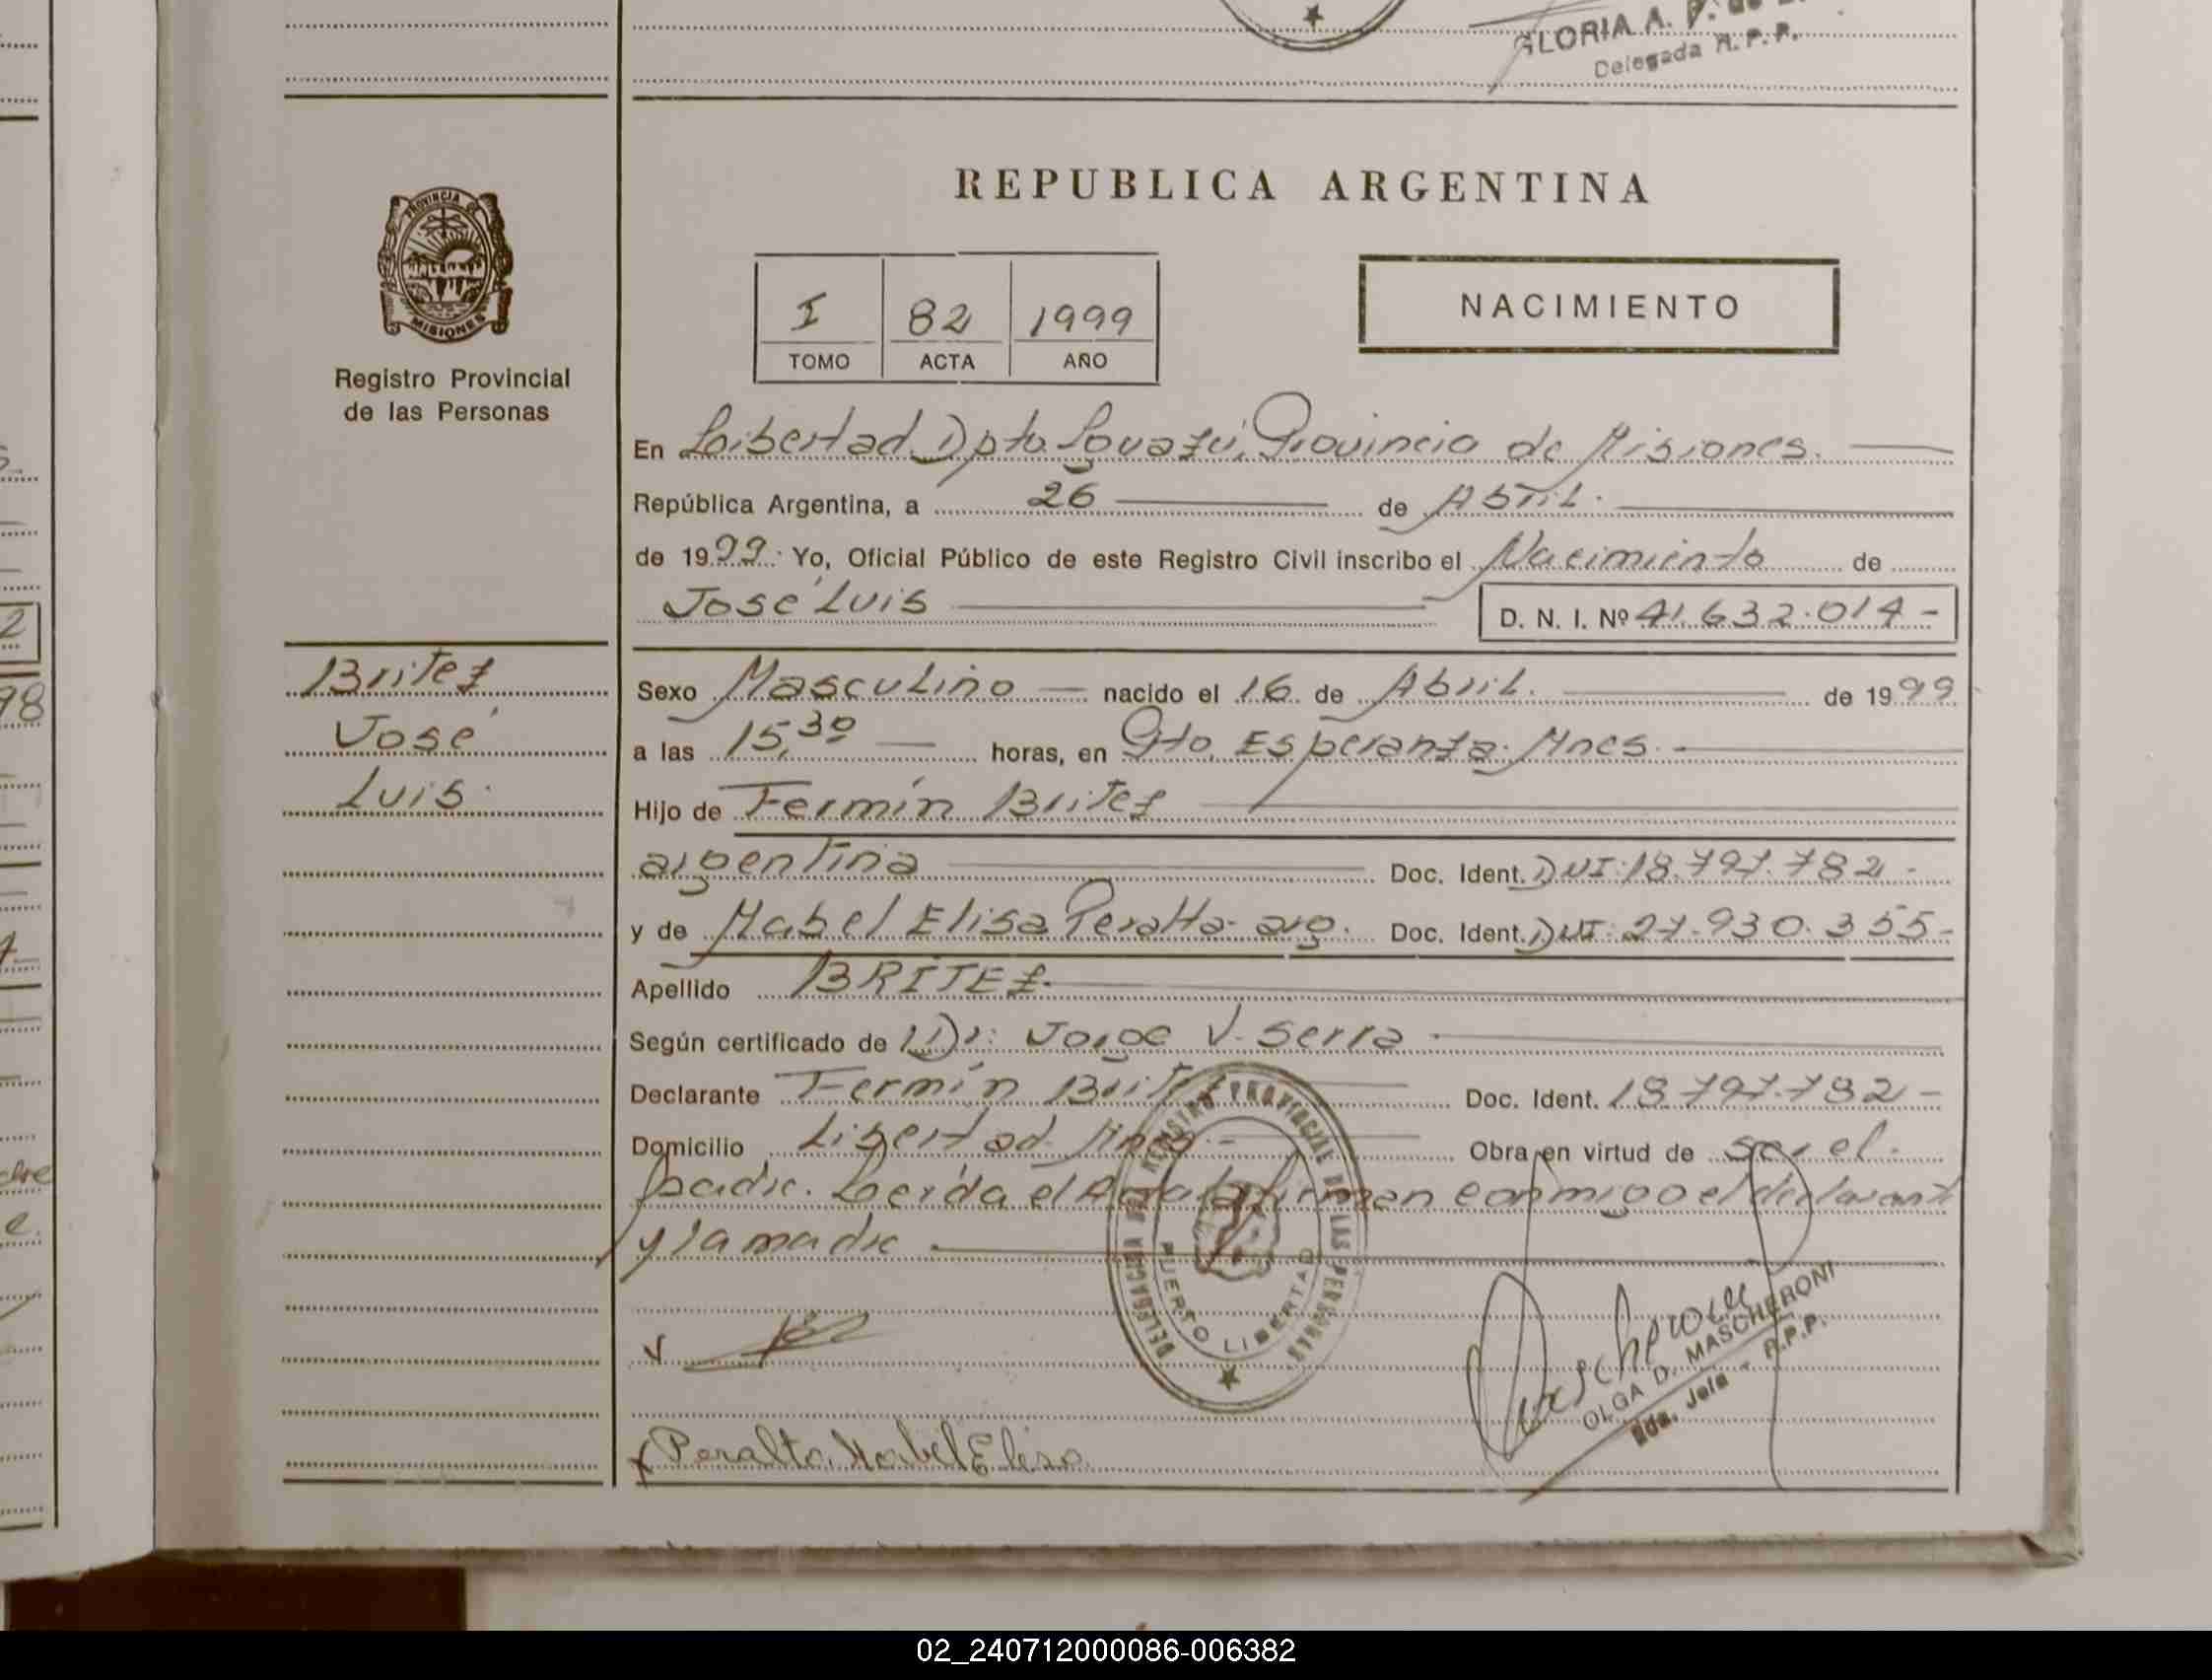 GLORIA A.
Delegada R. P. P.
PROVINCIA DE
MISIONES
Registro Provincial
de las Personas
REPUBLICA ARGENTINA
I 82 1999
TOMO ACTA AÑO
NACIMIENTO
En Libertad Dpto. Iguazú, Provincia de Misiones.
República Argentina, a 26 de Abril.
de 1999. Yo, Oficial Público de este Registro Civil inscribo el Nacimiento de
José Luis D. N. I. Nº 41.632.014-
Britez
José
Luis.
Sexo Masculino nacido el 16 de Abril. de 1999
a las 15,30 horas, en Pto. Esperanza. Mnes.
Hijo de Fermín Britez
argentina Doc. Ident. DNI: 18.797.782-
y de Mabel Elisa Peralta- arg. Doc. Ident. DNI: 27.930.355-
Apellido BRITEZ.
Según certificado de Dr: Jorge V. Serra
Declarante Fermín Britez Doc. Ident. 18.797.782-
Domicilio Libertad. Mnes.- Obra en virtud de ser el
padre. Leída el Acta la firman conmigo el declarant
y la madre
DELEGACION REGISTRO PROVINCIAL DE LAS PERSONAS
PUERTO LIBERTAD
Mascheroni
OLGA D. MASCHERONI
2da. Jefa - R.P.P.
x Peralta, Mabel Elisa
2
98
dre
e.
02_240712000086-006382